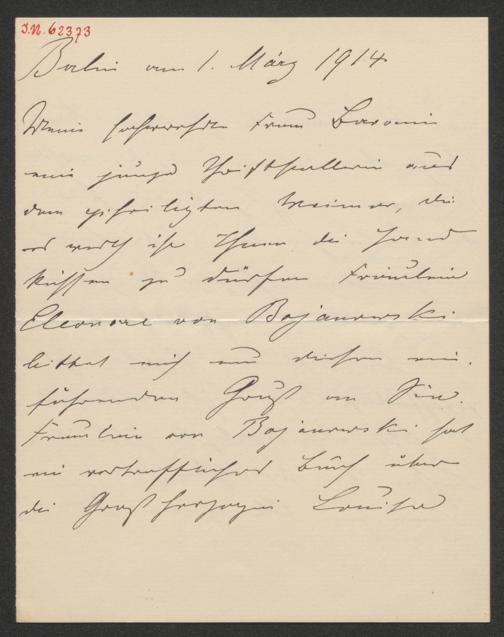 J.N. 62373
Berlin am 1. März 1914
Meine hochverehrte Frau Baronin
eine junge Schriftstellerin aus
dem geheiligten Weimar, die
es werth ist Ihnen die Hand
küssen zu dürfen Fräulein
Eleonore von Bojanowski
bittet mich um diesen ein-
führenden Gruß an Sie.
Fräulein von Bojanowski hat
ein vortreffliches Buch über
die Großherzogin Louise